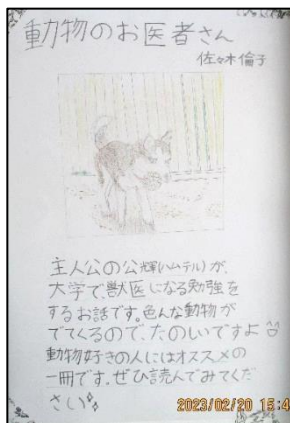 動物のお医者さん
佐々木倫子
主人公の公輝(ハムテル)が、
大学で、獣医になる勉強を
するお話です。色んな動物が
でてくるので、たのしいですよ
動物好きの人にはオススメの
一冊です。ぜひ読んでみてくだ
さい
2023/02/20 15:4